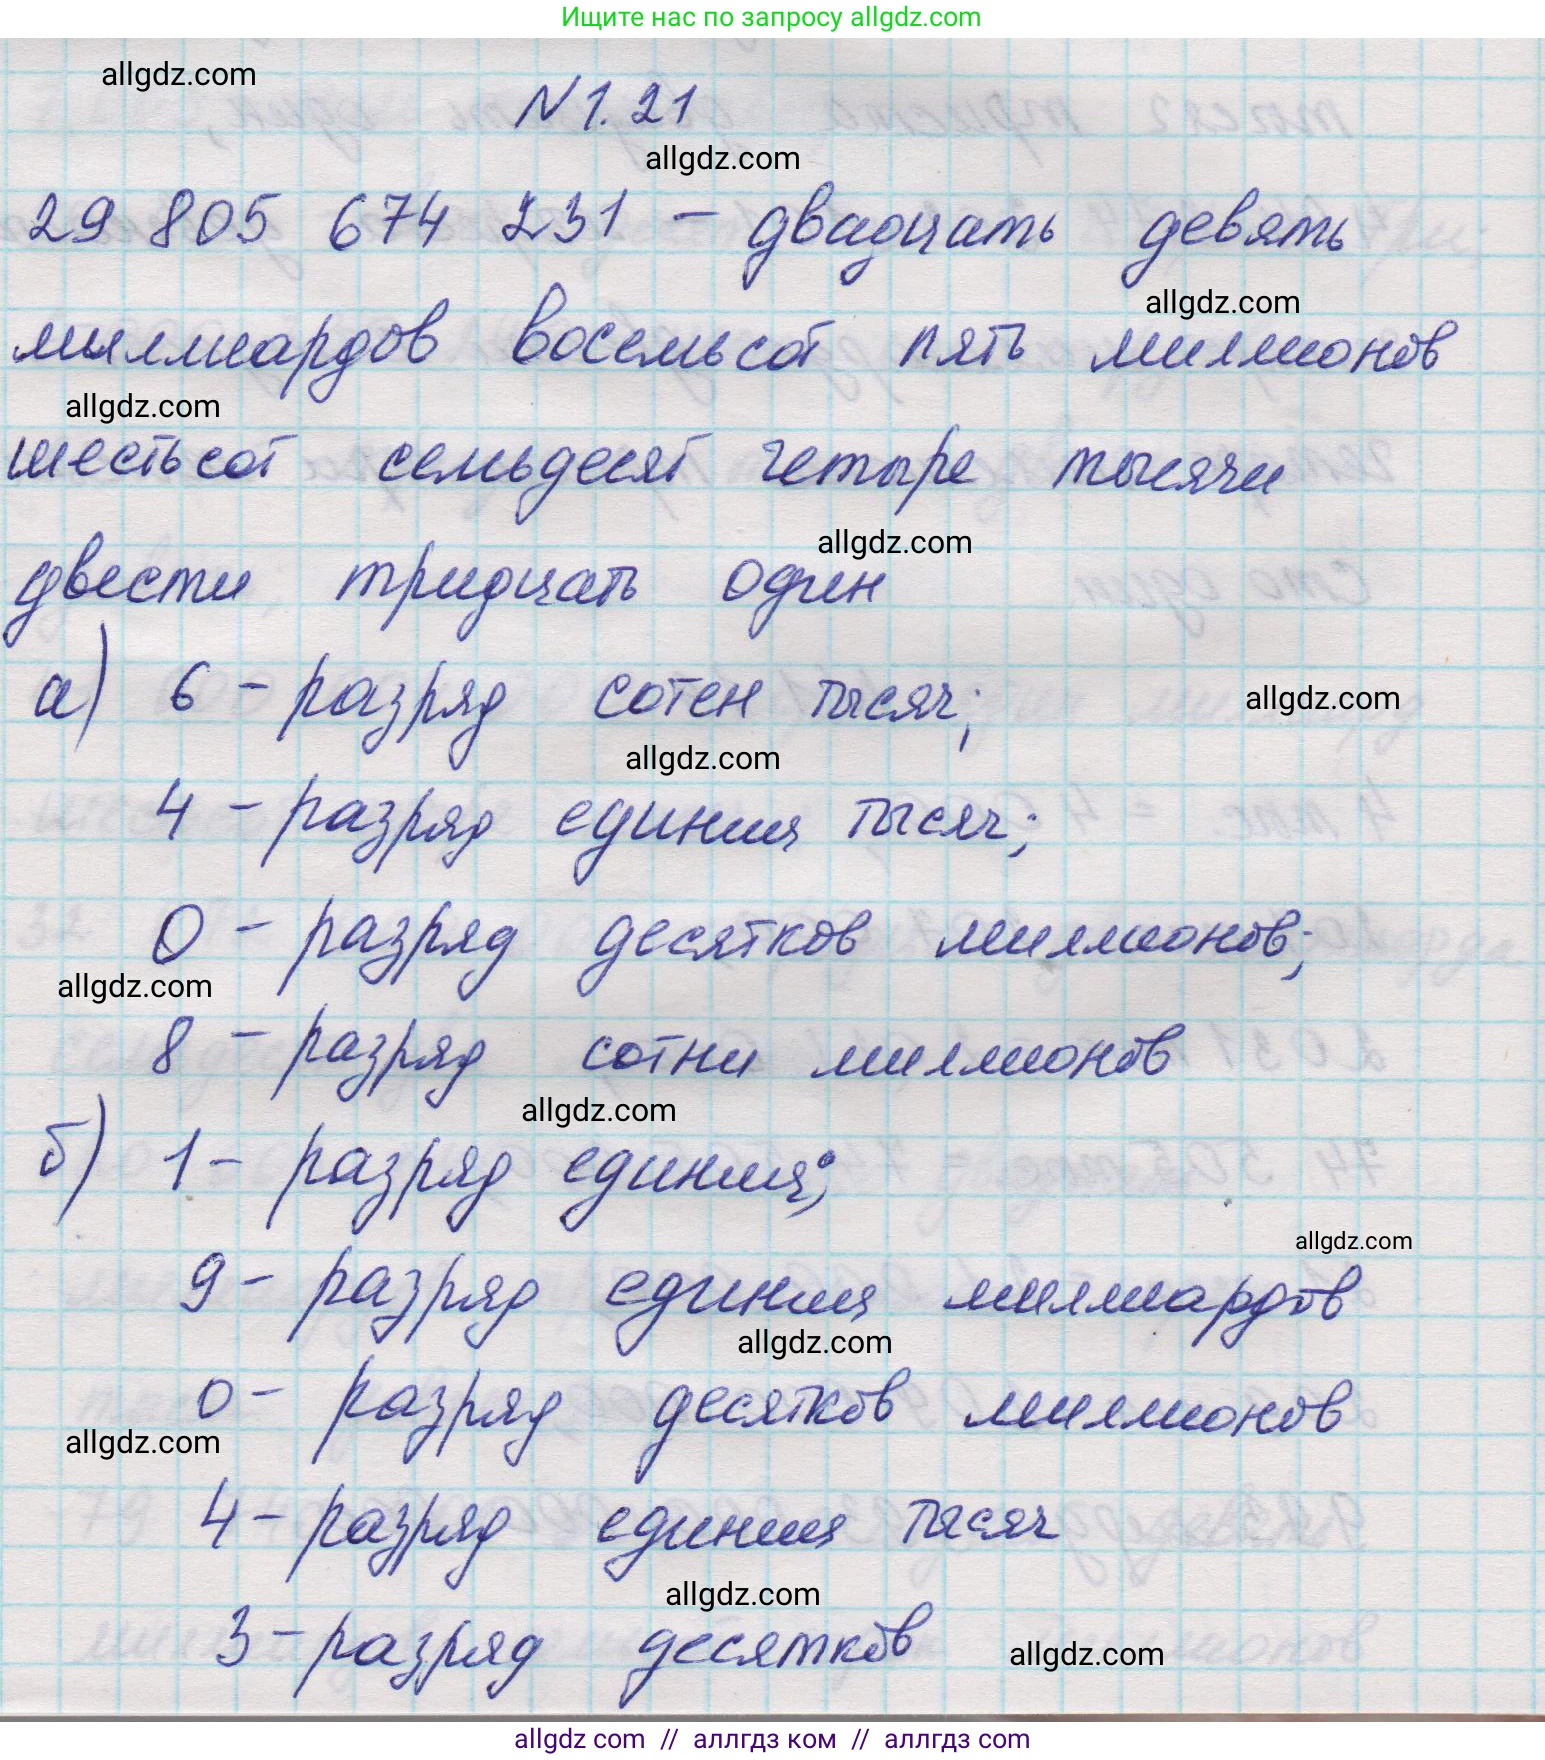 Ищите нас по запросу allgdz.com
allgdz.com
N 1.21
allgdz.com
29 805 674 231 - двадцать девять
allgdz.com
миллиардов восемьсот пять миллионов
allgdz.com
шестьсот семьдесят четыре тысячи
allgdz.com
двести тридцать один
а) 6 - разряд сотен тысяч;
allgdz.com
allgdz.com
4 - разряд единиц тысяч;
0 - разряд десятков миллионов;
allgdz.com
8 - разряд сотни миллионов
allgdz.com
б) 1 - разряд единиц;
allgdz.com
9 - разряд единиц миллиардов
allgdz.com
0 - разряд десятков миллионов
allgdz.com
4 - разряд единиц тысяч
allgdz.com
3 - разряд десятков
allgdz.com
allgdz.com // аллгдз ком // аллгдз com